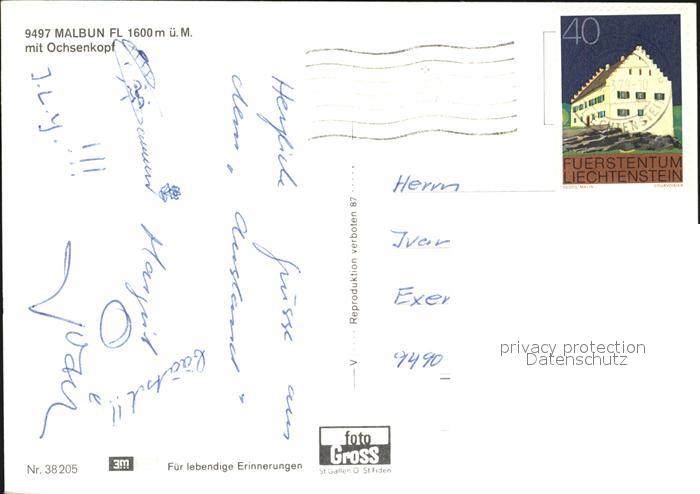 9497 MALBUN FL 1600 m ü. M.
mit Ochsenkopf
40
FUERSTENTUM
LIECHTENSTEIN
GEORG MALIN
COURVOISIER
Herzliche Grüsse aus
dem „Ausland"
Margrit
J.L.Y. !!!
Herrn
Ivar
Exer
9490
V Reproduktion verboten 87
privacy protection
Datenschutz
Nr. 38205
3m
Für lebendige Erinnerungen
foto
Gross
St. Gallen O St. Fiden